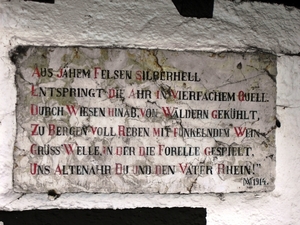 Aus jähem Felsen silberhell
Entspringt die Ahr in vierfachem Quell.
Durch Wiesen hinab, von Wäldern gekühlt,
Zu Bergen voll Reben mit funkelnden Wein
Grüss Welle, in der die Forelle gespielt,
Uns Altenahr Du und den Vater Rhein!"
1914.